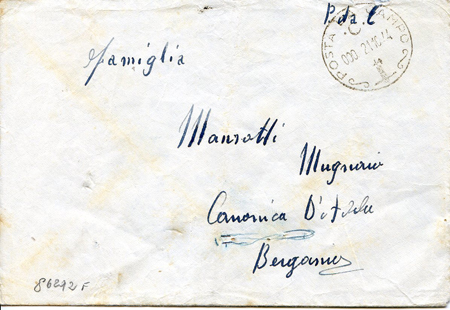 P. da C
POSTA DA CAMPO
000 21.10.44
famiglia
Manzotti
Mugnaio
Canonica D'Adda
Bergamo
86242 F